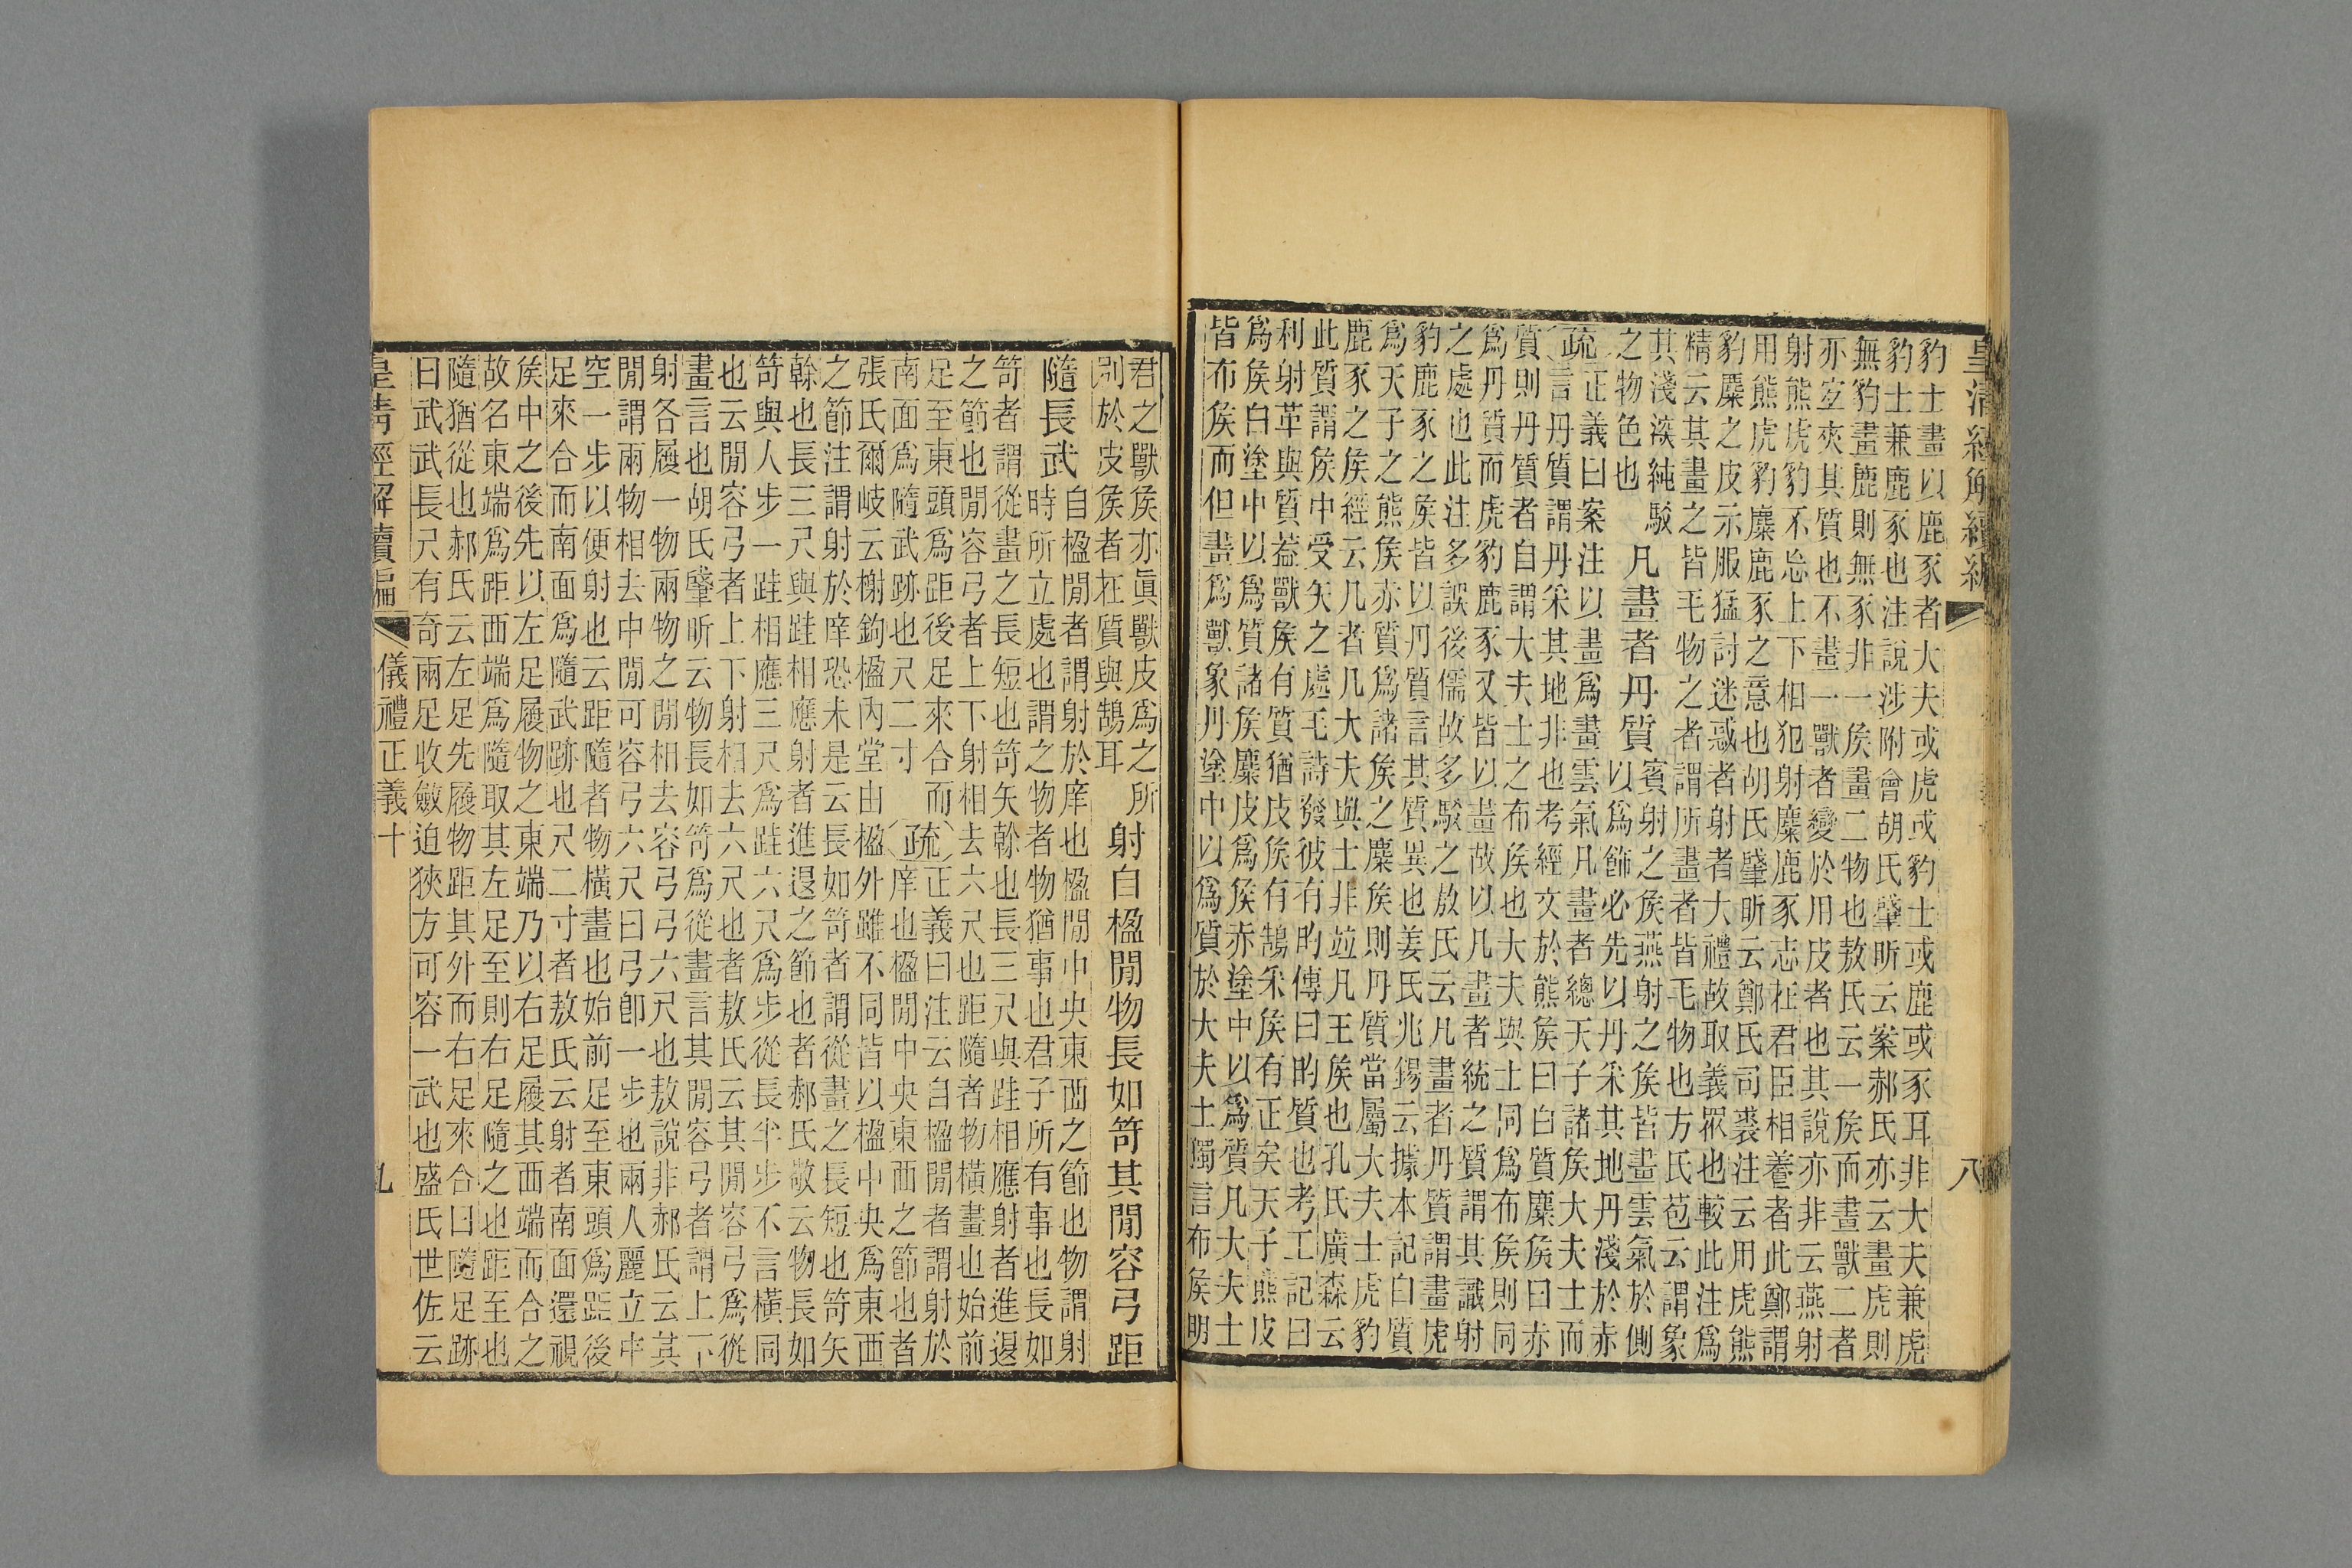 皇清經解續編
八
豹士畫以鹿豕者大夫或虎或豹士或鹿或豕耳非大夫兼虎
豹士兼鹿豕也注說涉附會胡氏肇昕云案郝氏亦云畫虎則
無豹畫鹿則無豕非一矦畫二物也敖氏云一矦而畫獸二者
亦㝎夾其質也不畫一獸者變於用皮者也其說亦非云燕射
射熊虎豹不忘上下相犯射麋鹿豕志在君臣相養者此鄭謂
用熊虎豹麋鹿豕之意也胡氏肇昕云鄭氏司裘注云用虎熊
豹麋之皮示服猛討迷惑者射者大禮故取義眾也較此注爲
精云其畫之皆毛物之者謂所畫者皆毛物也方氏苞云謂象
其淺深純駁
之物色也
凡畫者丹質
賓射之矦燕射之矦皆畫雲氣於側
以爲飾必先以丹采其地丹淺於赤
疏正義曰案注以畫爲畫雲氣凡畫者總天子諸矦大夫士而
言丹質謂丹采其地非也考經文於熊矦曰白質麋矦曰赤
質則丹質者自謂大夫士之布矦也大夫與士同爲布矦則同
爲丹質而虎豹鹿豕又皆以畫故以凡畫者統之質謂其識射
之處也此注多誤後儒故多駁之敖氏云凡畫者丹質謂畫虎
豹鹿豕之矦皆以丹質言其質異也姜氏兆錫云據本記白質
爲天子之熊矦赤質爲諸矦之麋矦則丹質當屬大夫士虎豹
鹿豕之矦經云凡者凡大夫與士非竝凡王矦也孔氏廣森云
此質謂矦中受矢之處毛詩發彼有的傳曰的質也考工記曰
利射革與質葢獸矦有質猶皮矦有鵠采矦有正矣天子熊皮
爲矦白塗中以爲質諸矦麋皮爲矦赤塗中以爲質凡大夫士
皆布矦而但畫爲獸象丹塗中以爲質於大夫士獨言布矦明
君之獸矦亦眞獸皮爲之所
別於皮矦者在質與鵠耳
射自楹閒物長如笴其閒容弓距
隨長武
自楹閒者謂射於庠也楹閒中央東西之節也物謂射
時所立處也謂之物者物猶事也君子所有事也長如
笴者謂從畫之長短也笴矢榦也長三尺與跬相應射者進退
之節也閒容弓者上下射相去六尺也距隨者物橫畫也始前
足至東頭爲距後足來合而
南面爲隨武跡也尺二寸
疏正義曰注云自楹閒者謂射於
庠也楹閒中央東西之節也者
張氏爾岐云榭鉤楹內堂由楹外雖不同皆以楹中央爲東西
之節注謂射於庠恐未是云長如笴者謂從畫之長短也笴矢
榦也長三尺與跬相應射者進退之節也者郝氏敬云物長如
笴與人步一跬相應三尺爲跬六尺爲步從長半步不言橫同
也云閒容弓者上下射相去六尺也者敖氏云其閒容弓爲從
畫言也胡氏肇昕云物長如笴爲從畫言其閒容弓者謂上下
射各履一物兩物之閒相去容弓弓六尺也敖說非郝氏云其
閒謂兩物相去中閒可容弓六尺曰弓卽一步也兩人麗立中
空一步以便射也云距隨者物橫畫也始前足至東頭爲距後
足來合而南面爲隨武跡也尺二寸者敖氏云射者南面還視
矦中之後先以左足履物之東端乃以右足履其西端而合之
故名東端爲距西端爲隨取其左足至則右足隨之也距至也
隨猶從也郝氏云左足先履物距其外而右足來合曰隨足跡
曰武武長尺有奇兩足收斂迫狹方可容一武也盛氏世佐云
皇清經解續編
儀禮正義十
九